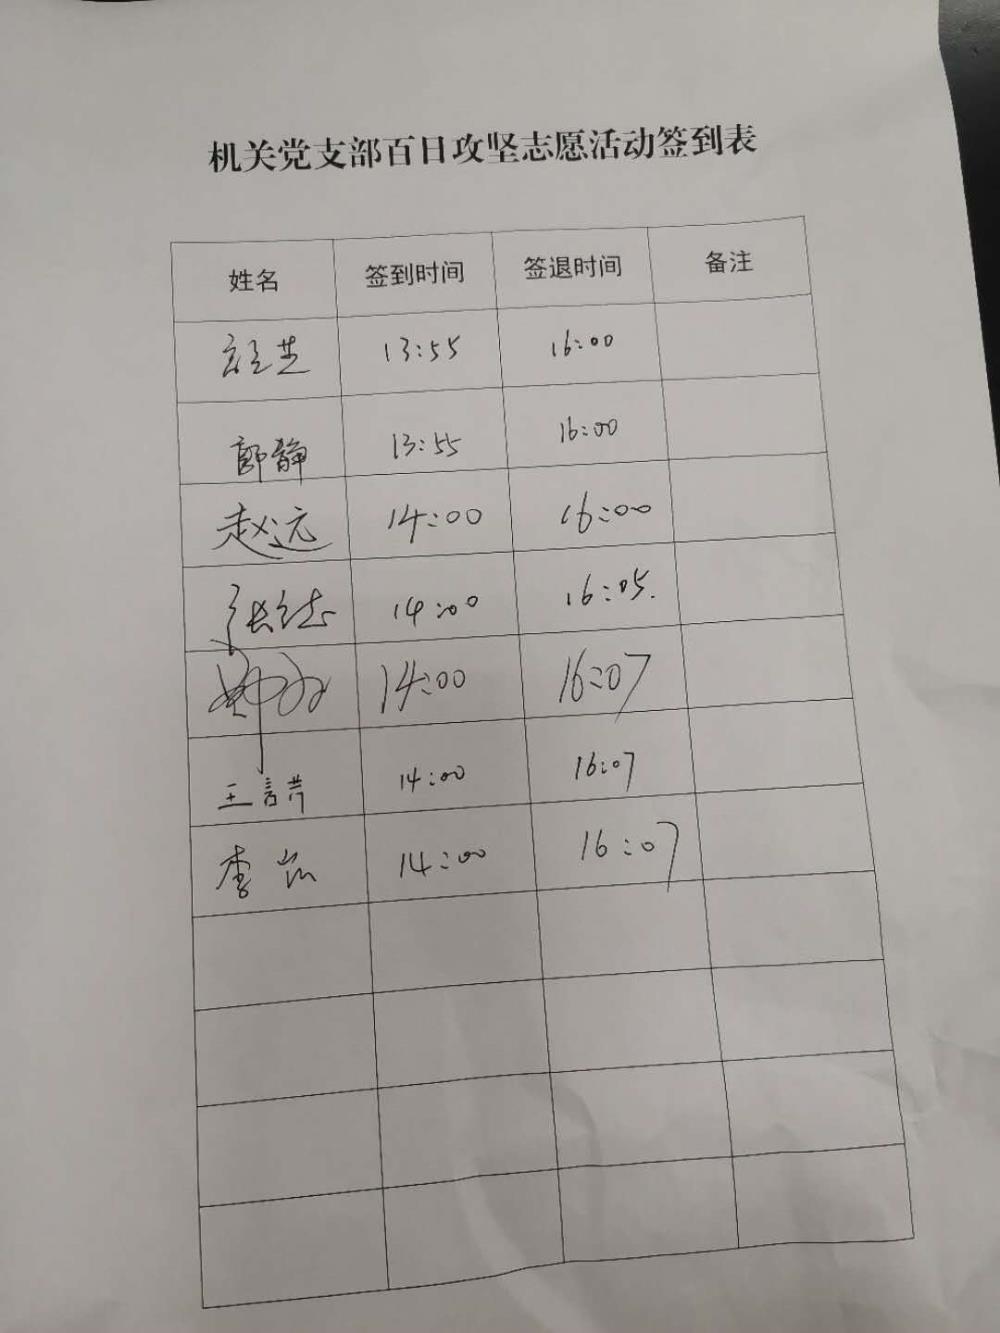 机关党支部百日攻坚志愿活动签到表
姓名 签到时间 签退时间 备注
13:55 16:00
郭静 13:55 16:00
赵远 14:00 16:00
张 14:00 16:05.
14:00 16:07
王 14:00 16:07
李 14:00 16:07